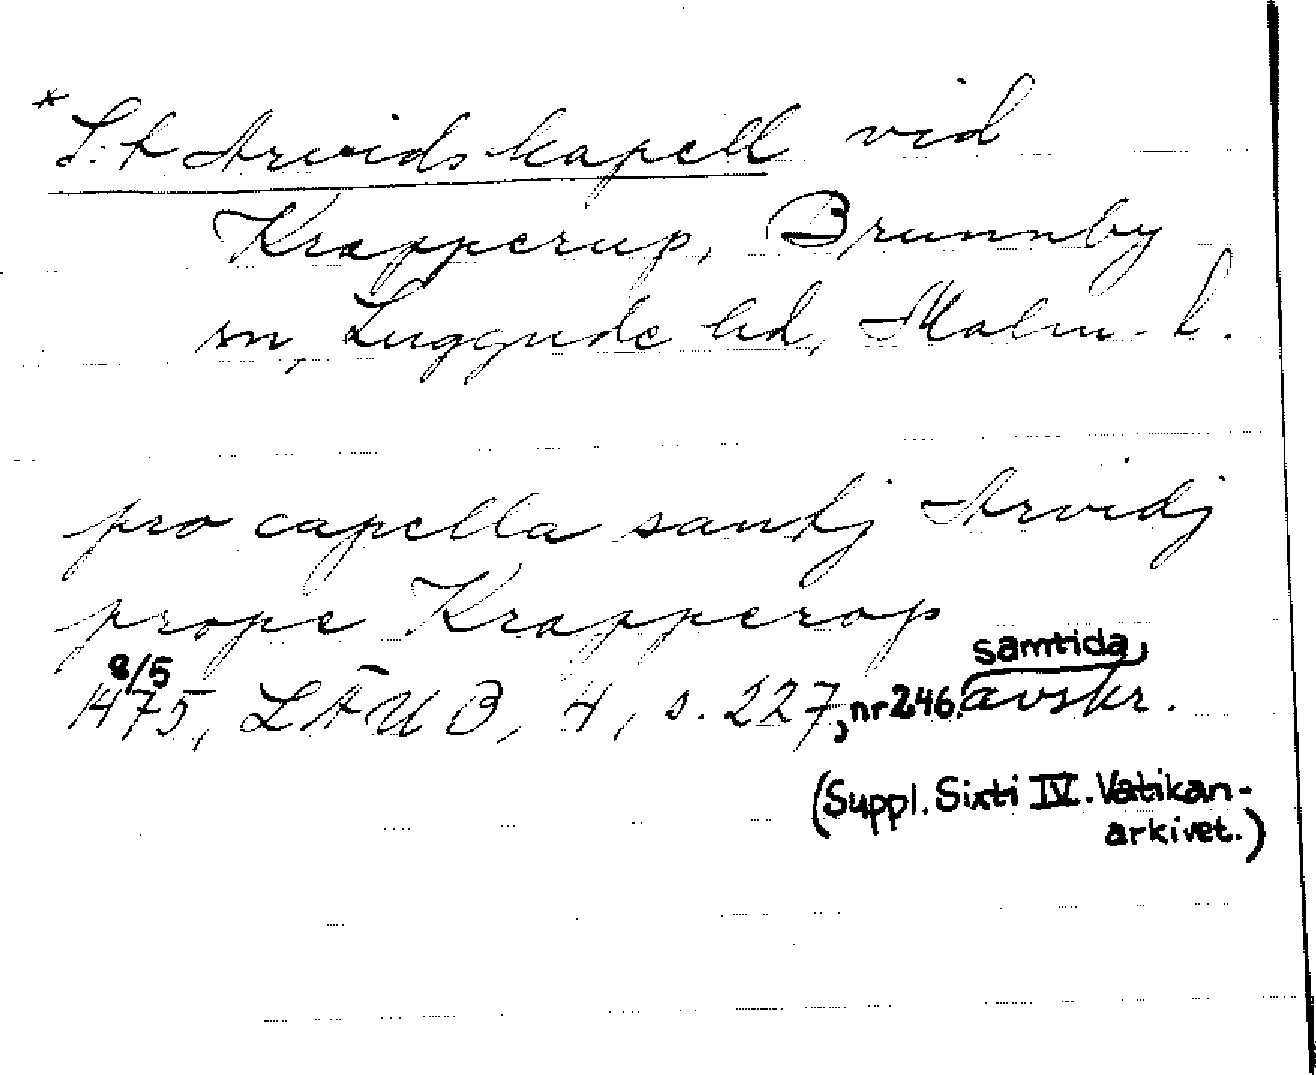 * S:t Arvids kapell vid
Krapperup, Brunnby
sn, Luggude hd, Malm. l.
pro capella santj Arvidj
prope Krapperop
8/5 samtida
1475, LÄUB, 4, s. 227, nr 246. avskr.
(Suppl. Sixti IV. Vatikan-
arkivet.)